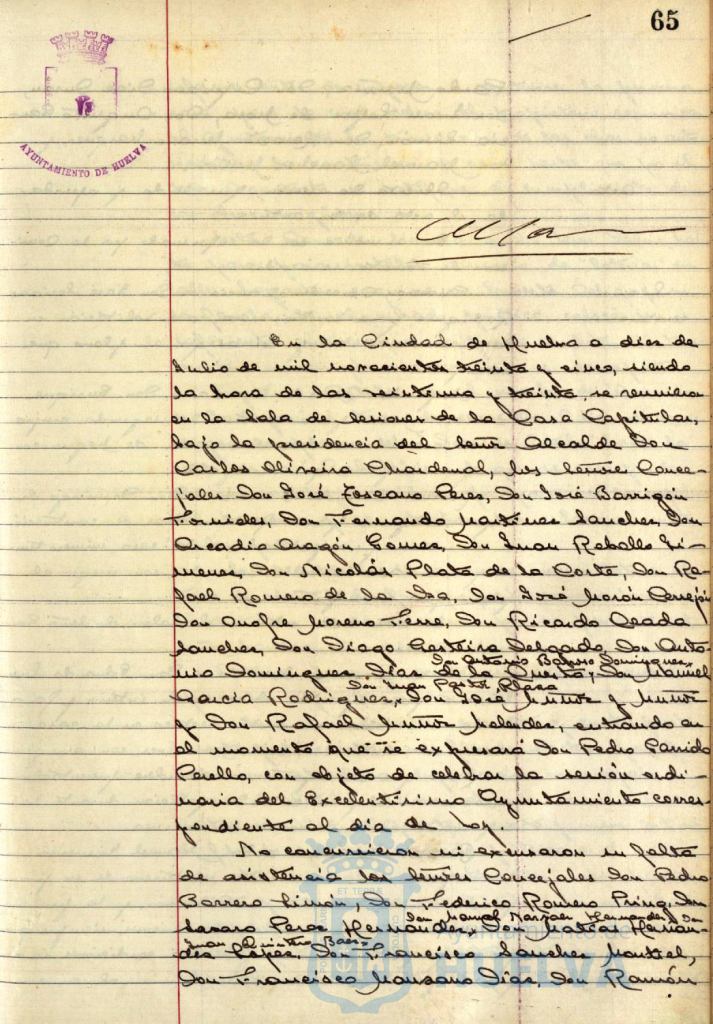 65
AYUNTAMIENTO DE HUELVA
En la Ciudad de Huelva a diez de
Julio de mil novecientos treinta y cinco, siendo
la hora de las veintiuna y treinta, se reunieron
en la Sala de Sesiones de la Casa Capitular,
bajo la presidencia del Señor Alcalde Don
Carlos Oliveira Chardenal, los Señores Conce-
jales Don José Toscano Perez, Don José Barrigón
Fornieles, Don Fernando Martinez Sanchez, Don
Arcadio Aragón Gomez, Don Juan Rebollo Ji-
menez, Don Nicolás Plata de la Corte, Don Ra-
fael Romero de la Isa, Don José Morón Cerrejón
Don Onofre Moreno Ferre, Don Ricardo Acada
Sanchez, Don Diego Delgado, Don Anto-
Don Antonio Barroso Dominguez,
nio Dominguez Diaz de la Cuesta, Don Manuel
Don Juan Pastor Plaza
Garcia Rodriguez, Don José Muñoz y Muñoz
y Don Rafael Muñoz Melendez, entrando en
el momento que se expresará Don Pedro Garrido
Perello, con objeto de celebrar la sesión ordi-
naria del Excelentísimo Ayuntamiento corres-
pondiente al dia de hoy.
No concurrieron ni excusaron su falta
de asistencia los Señores Concejales Don Pedro
Barrero Limón, Don Federico Romero Don
Don Manuel Narvaez Hernandez, Don
Lazaro Perez Hernandez, Don Matias Hernan-
Juan Quintero Baez
dez Lopez, Don Francisco Sanchez Montiel,
Don Francisco Manzano Diaz, Don Ramón
Ayuntamiento de
HUELVA